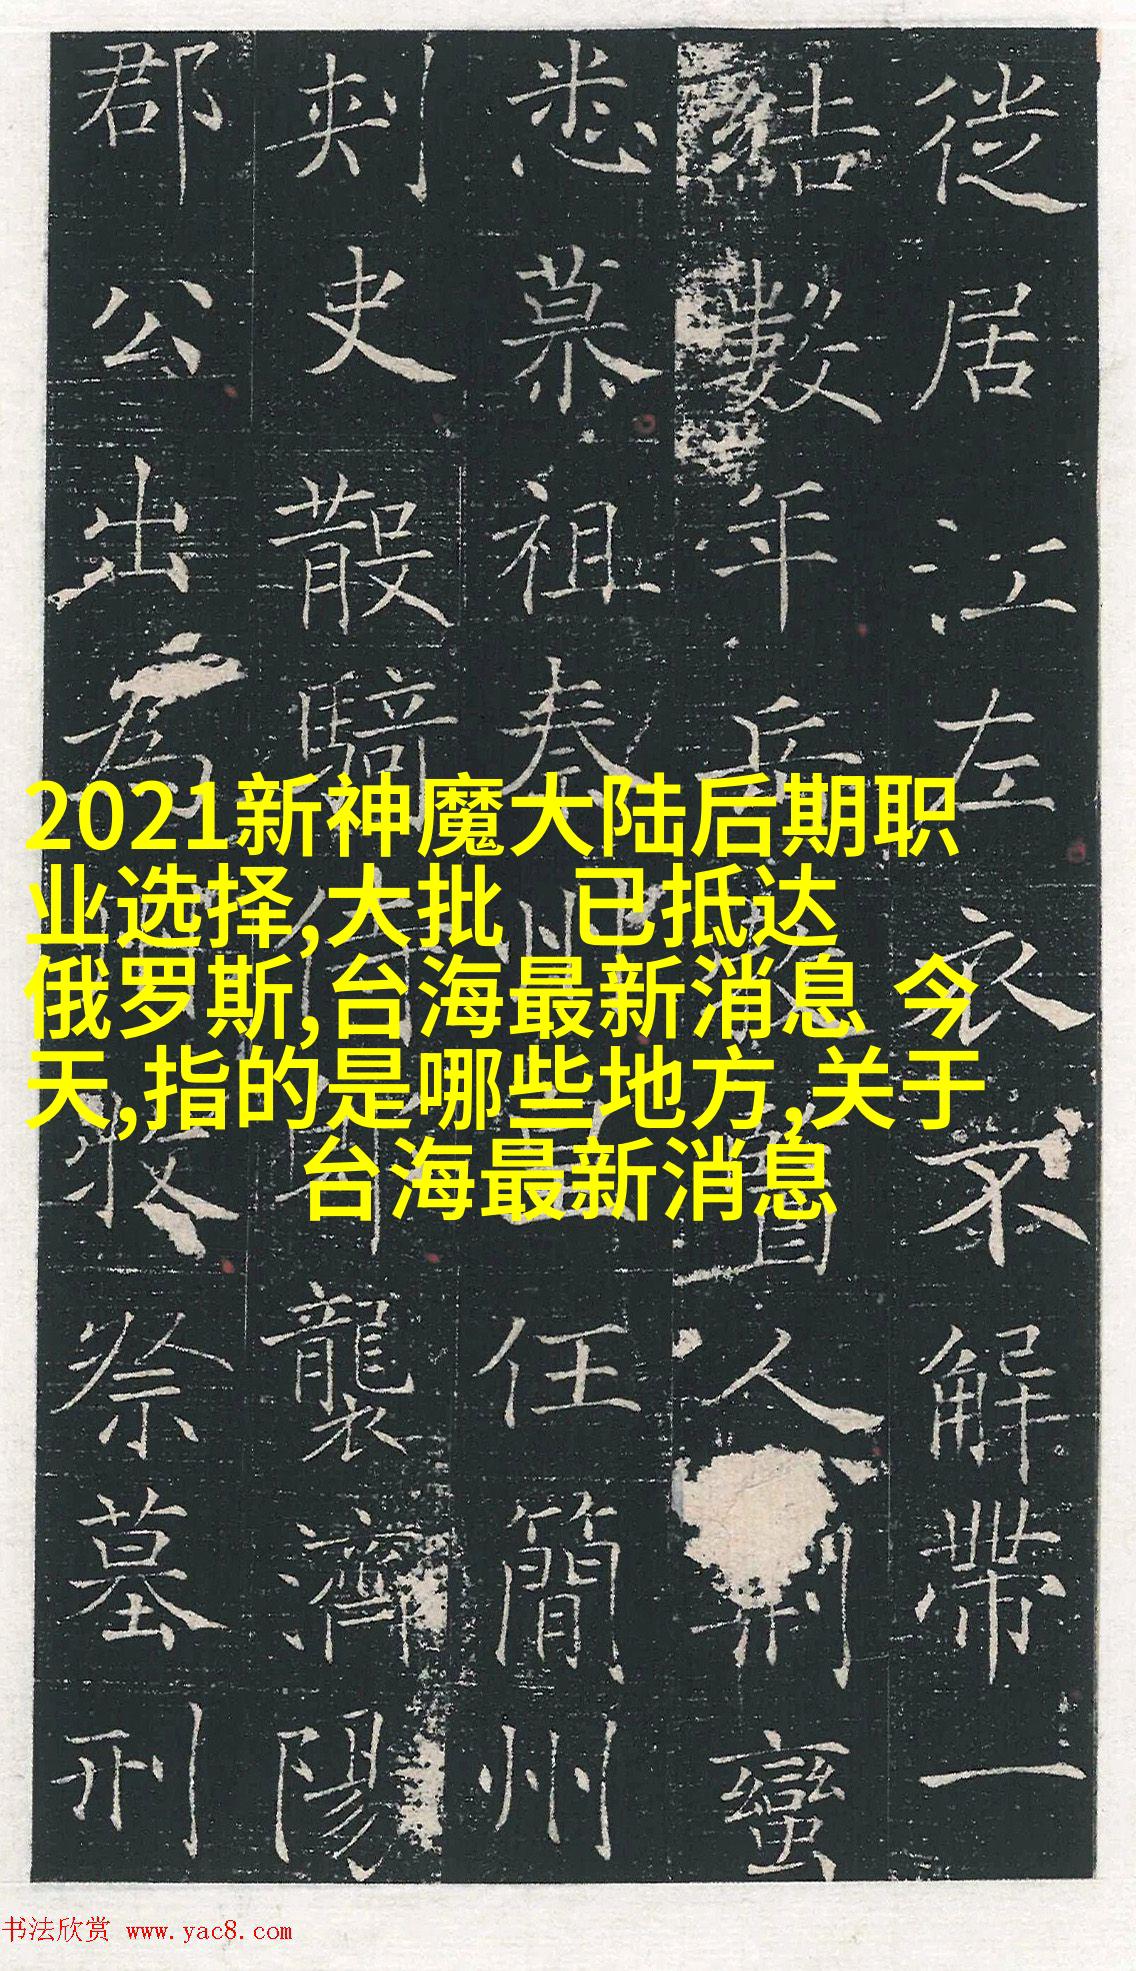 2021新神魔大陆后期职
业选择,大批 已抵达
俄罗斯,台海最新消息 今
天,指的是哪些地方,关于
台海最新消息
從居江左衣不解帶一
結數年 人荊蠻
慕祖 任簡州
刺史散騎侍郎襲濟陽
郡公出為 祭墓刑
书法欣赏 www.yac8.com